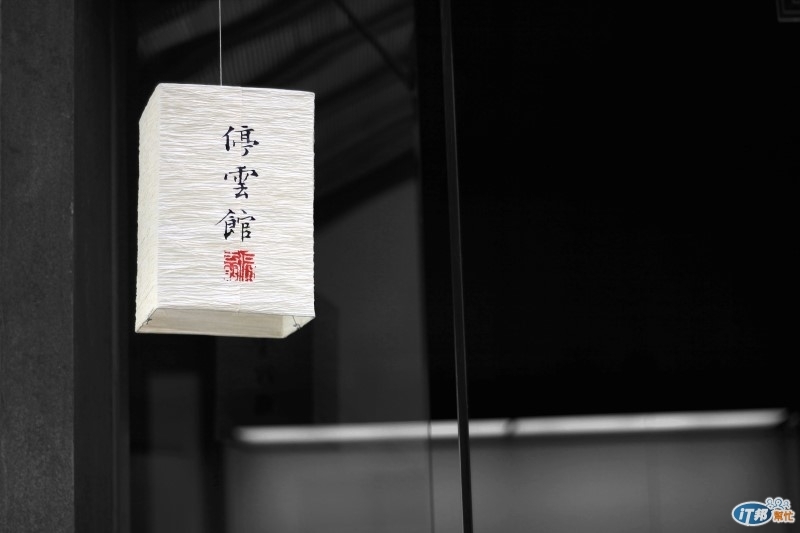 停雲館
iT邦
幫忙